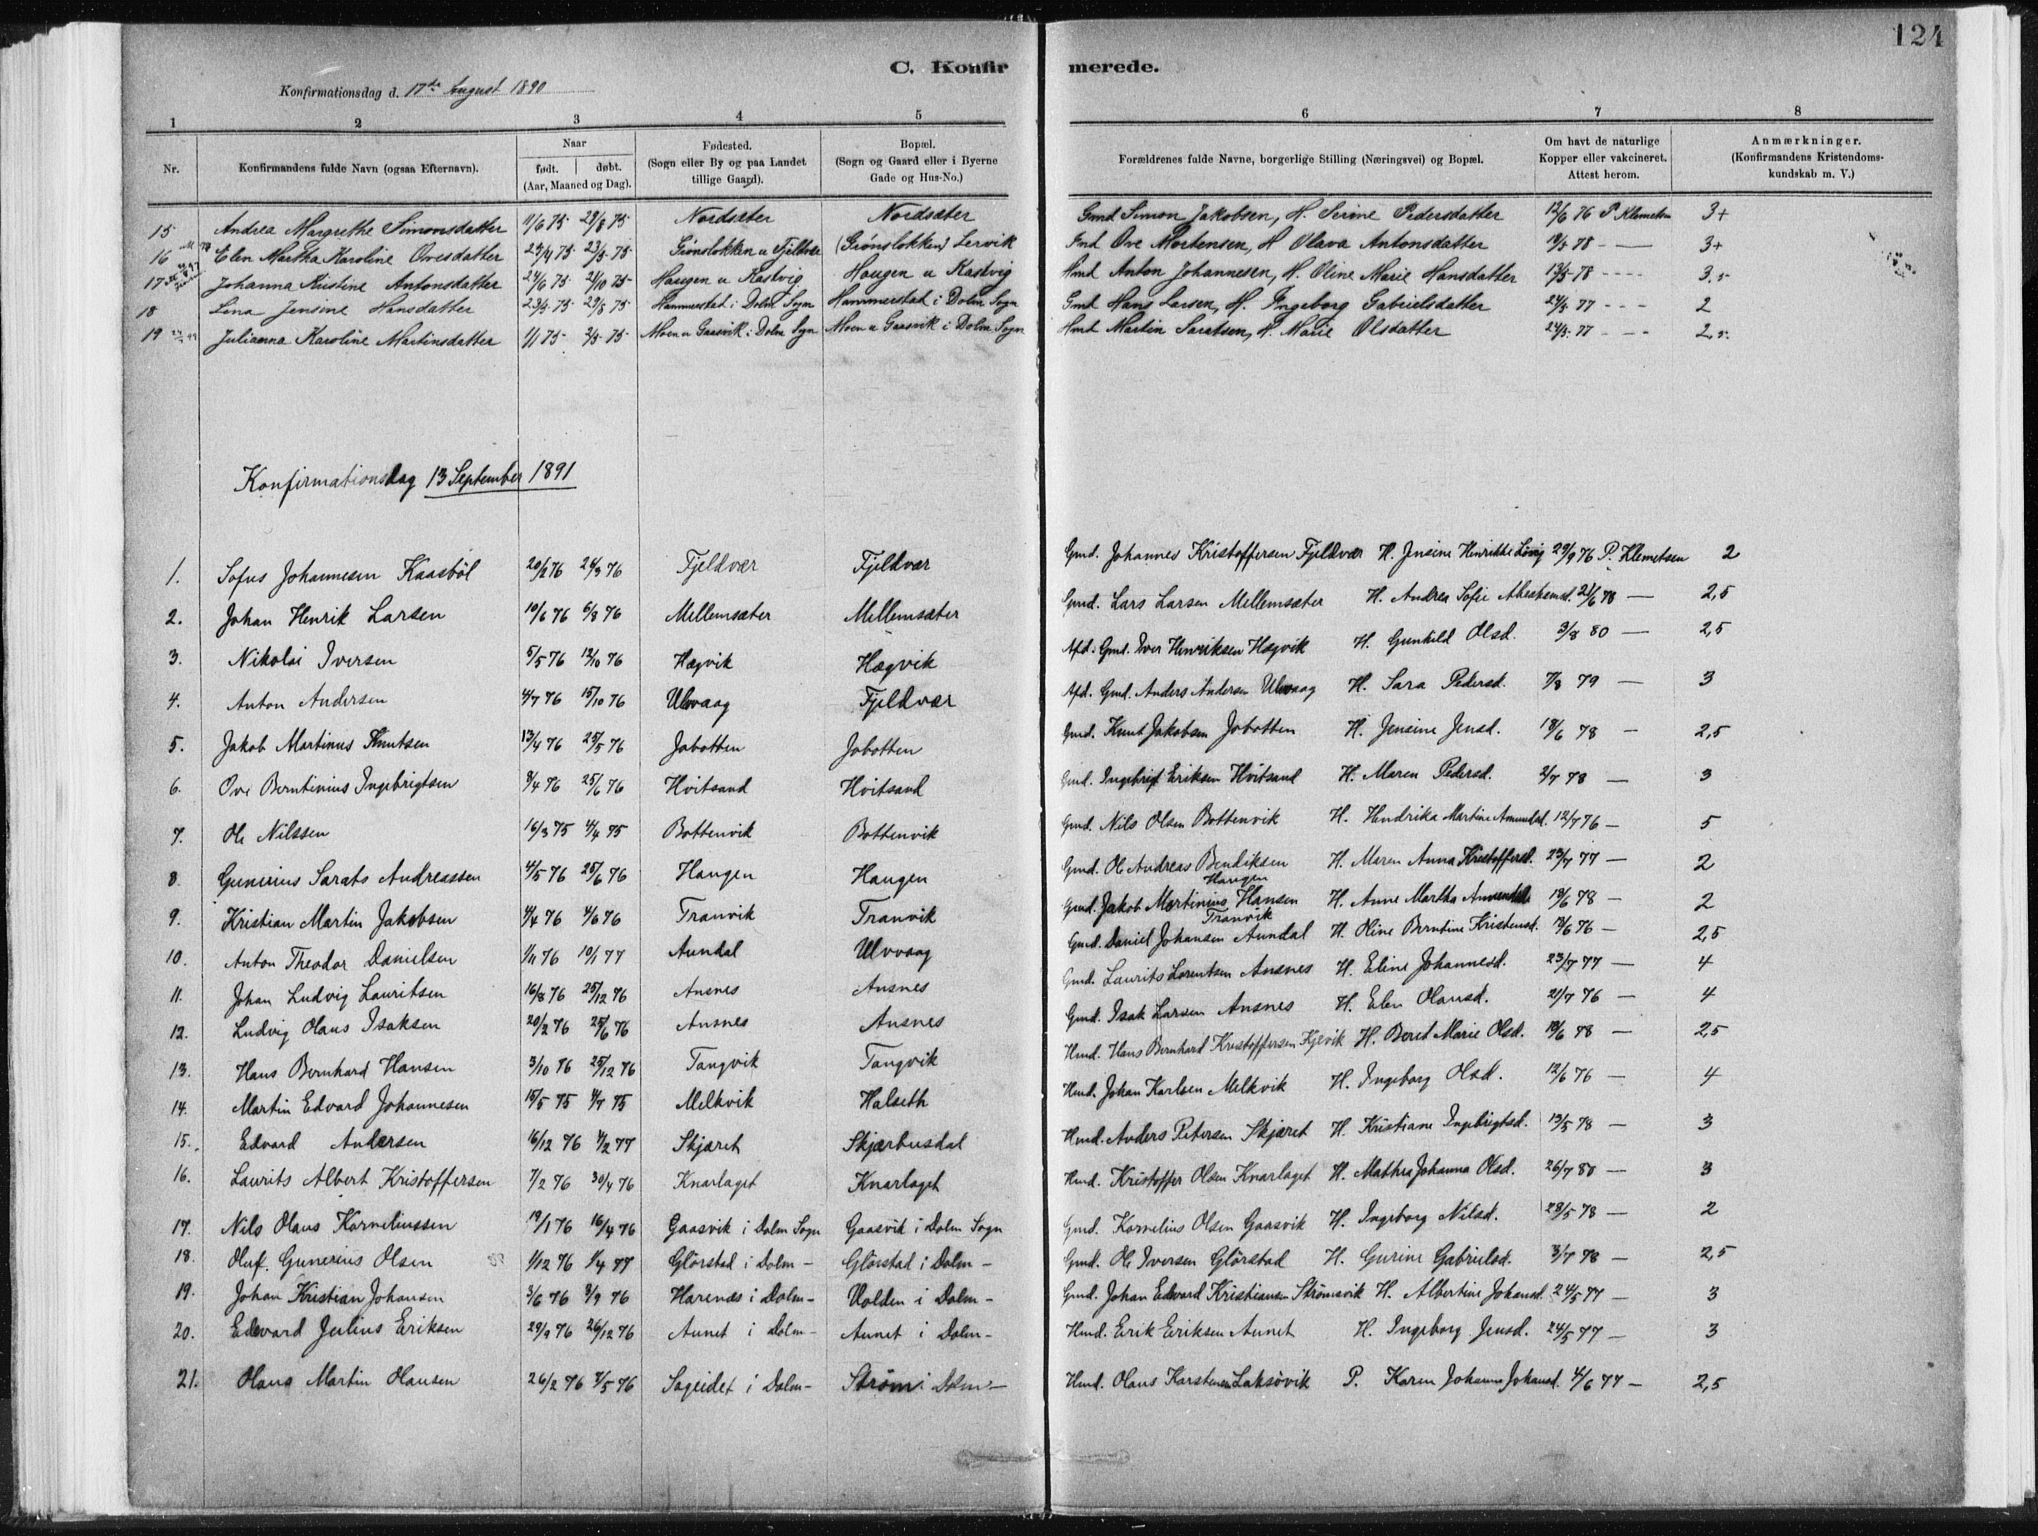 124
C. Konfirmerede.
Konfirmationsdag d. 17de August 1890
1 2 3 4 5 6 7 8
Nr. Konfirmandens fulde Navn (ogsaa Efternavn). Naar født. døbt. (Aar, Maaned og Dag). Fødested. (Sogn eller By og paa Landet tillige Gaard). Bopæl. (Sogn og Gaard eller i Byerne Gade og Hus-No.) Forældrenes fulde Navne, borgerlige Stilling (Næringsvei) og Bopæl. Om havt de naturlige Kopper eller vakcineret. Attest herom. Anmærkninger. (Konfirmandens Kristendomskundskab m. V.)
15 Andrea Margrethe Simonsdatter 11/6 75 29/8 75 Nordsæter Nordsæter Gmd Simon Jakobsen, H. Serine Pedersdatter 12/6 76 P Klemetsen 3+
16 Elen Martha Karoline Ovesdatter 23/5 75 Grønslokken u Fjeldvær (Grønslokken) Lervik Ove Mortensen, H Olava Antonsdatter 78 - 3+
17 Johanna Kristine Antonsdatter 24/6 75 24/10 75 Haugen u Kastvig Haugen u Kastvig Hmd Anton Johannesen, H. Oline Marie Hansdatter 13/5 78 - 3,5
18 Lina Jensine Hansdatter 23/5 75 29/8 75 Hammerstad i Dolm Sogn Hammerstad i Dolm Sogn Gmd Hans Larsen, H. Ingeborg Gabrielsdatter 24/5 77 - 2
19 Julianna Karoline Martinsdatter 1/1 75 2/5 75 Moen u Gaasvik i Dolm Sogn Moen u Gaasvik i Dolm Sogn Hmd Martin Saratsen, H. Marie Olsdatter 24/5 77 - 2,5
Konfirmationsdag 13 September 1891
1. Sofus Johannesen Kaasbøl 20/2 76 24/3 76 Fjeldvær Fjeldvær Gmd. Johannes Kristoffersen Fjeldvær H. Jensine Henrikke Lövig 29/9 76 P. Klemetsen 2
2. Johan Henrik Larsen 10/6 76 6/8 76 Mellemsæter Mellemsæter Gmd. Lars Larsen Mellemsæter H. Andrea Sofie 21/6 78 — 2,5
3. Nikolai Iversen 5/5 76 12/10 76 Hægvik Hægvik Afd. Gmd. Iver Henriksen Hægvik H. Gunhild Olsd. 3/8 80 — 2,5
4. Anton Andersen 4/7 76 15/10 76 Ulvvaag Fjeldvær Afd. Gmd. Anders Andersen Ulvvaag H. Sara Pedersd. 7/8 79 — 3
5. Jakob Martinus Knutsen 13/4 76 25/5 76 Jobotten Jobotten Gmd. Knut Jakobsen Jobotten H. Jensine Jensd. 18/6 78 — 2,5
6. Ove Berntinius Ingebrigtsen 8/4 76 25/6 76 Hvitsand Hvitsand Gmd. Ingebrigt Eriksen Hvitsand H. Maren Pedersd. 2/7 78 — 3
7. Ole Nilssen 16/3 75 4/4 75 Bottenvik Bottenvik Gmd. Nils Olsen Bottenvik H. Hendrika Martine Amundsd. 12/7 76 — 5
8. Gunerius Sarats Andreassen 4/5 76 25/6 76 Haugen Haugen Gmd. Ole Andreas Bendiksen Haugen H. Maren Anna Kristoffersd. 23/7 77 — 2
9. Kristian Martin Jakobsen 4/4 76 4/6 76 Tranvik Tranvik Gmd. Jakob Martinius Hansen Tranvik H. Anne Martha Amundsd. 18/6 78 — 2
10. Anton Theodor Danielsen 1/11 76 10/1 77 Aundal Ulvvaag Gmd. Daniel Johansen Aundal H. Oline Berntine Kristensd. 13/6 76 — 2,5
11. Johan Ludvig Lauritsen 16/8 76 25/12 76 Ansnes Ansnes Gmd. Laurits Lorentsen Ansnes H. Eline Johannesd. 23/7 77 — 4
12. Ludvig Olaus Isaksen 20/2 76 25/6 76 Ansnes Ansnes Gmd. Isak Larsen Ansnes H. Elen Olausd. 21/7 76 — 4
13. Hans Bernhard Hansen 3/10 76 25/12 76 Tangvik Tangvik Hmd. Hans Bernhard Kristoffersen Kjevik H. Beret Marie Olsd. 18/6 78 — 2,5
14. Martin Edvard Johannesen 15/5 75 4/7 75 Melkvik Halseth Hmd. Johan Karlsen Melkvik H. Ingeborg Olsd. 12/6 76 — 4
15. Edvard Andersen 16/12 76 4/2 77 Skjæret Skjærbusdal Hmd. Anders Petersen Skjæret H. Kristiane Ingebrigtsd. 13/5 78 — 3
16. Laurits Albert Kristoffersen 7/2 76 30/4 76 Knarlaget Knarlaget Hmd. Kristoffer Olsen Knarlaget H. Mathea Johanna Olsd. 26/7 80 — 3
17. Nils Olaus Korneliussen 19/1 76 16/4 76 Gaasvik i Dolm Sogn Gaasvik i Dolm Sogn Gmd. Kornelius Olsen Gaasvik H. Ingeborg Nilsd. 28/5 78 — 2
18. Oluf. Gunerius Olsen 1/12 76 1/4 77 Glörstad i Dolm — Glörstad i Dolm — Gmd. Ole Iversen Glörstad H. Gurine Gabrielsd. 3/7 78 — 2,5
19. Johan Kristian Johansen 3/6 76 3/9 76 Harenæs i Dolm — Volden i Dolm — Gmd. Johan Edvard Kristiansen Strömsvik H. Albertine Johansd. 24/5 77 — 3
20. Edevard Julius Eriksen 29/9 76 26/12 76 Aunet i Dolm — Aunet i Dolm — Hmd. Erik Eriksen Aunet H. Ingeborg Jensd. 24/5 77 — 3
21. Olaus Martin Olausen 26/2 76 7/5 76 Sageidet i Dolm — Ström i Dolm — Hmd. Olaus Karstensen Laksövik P. Karen Johanna Johansd. 4/6 77 — 2,5